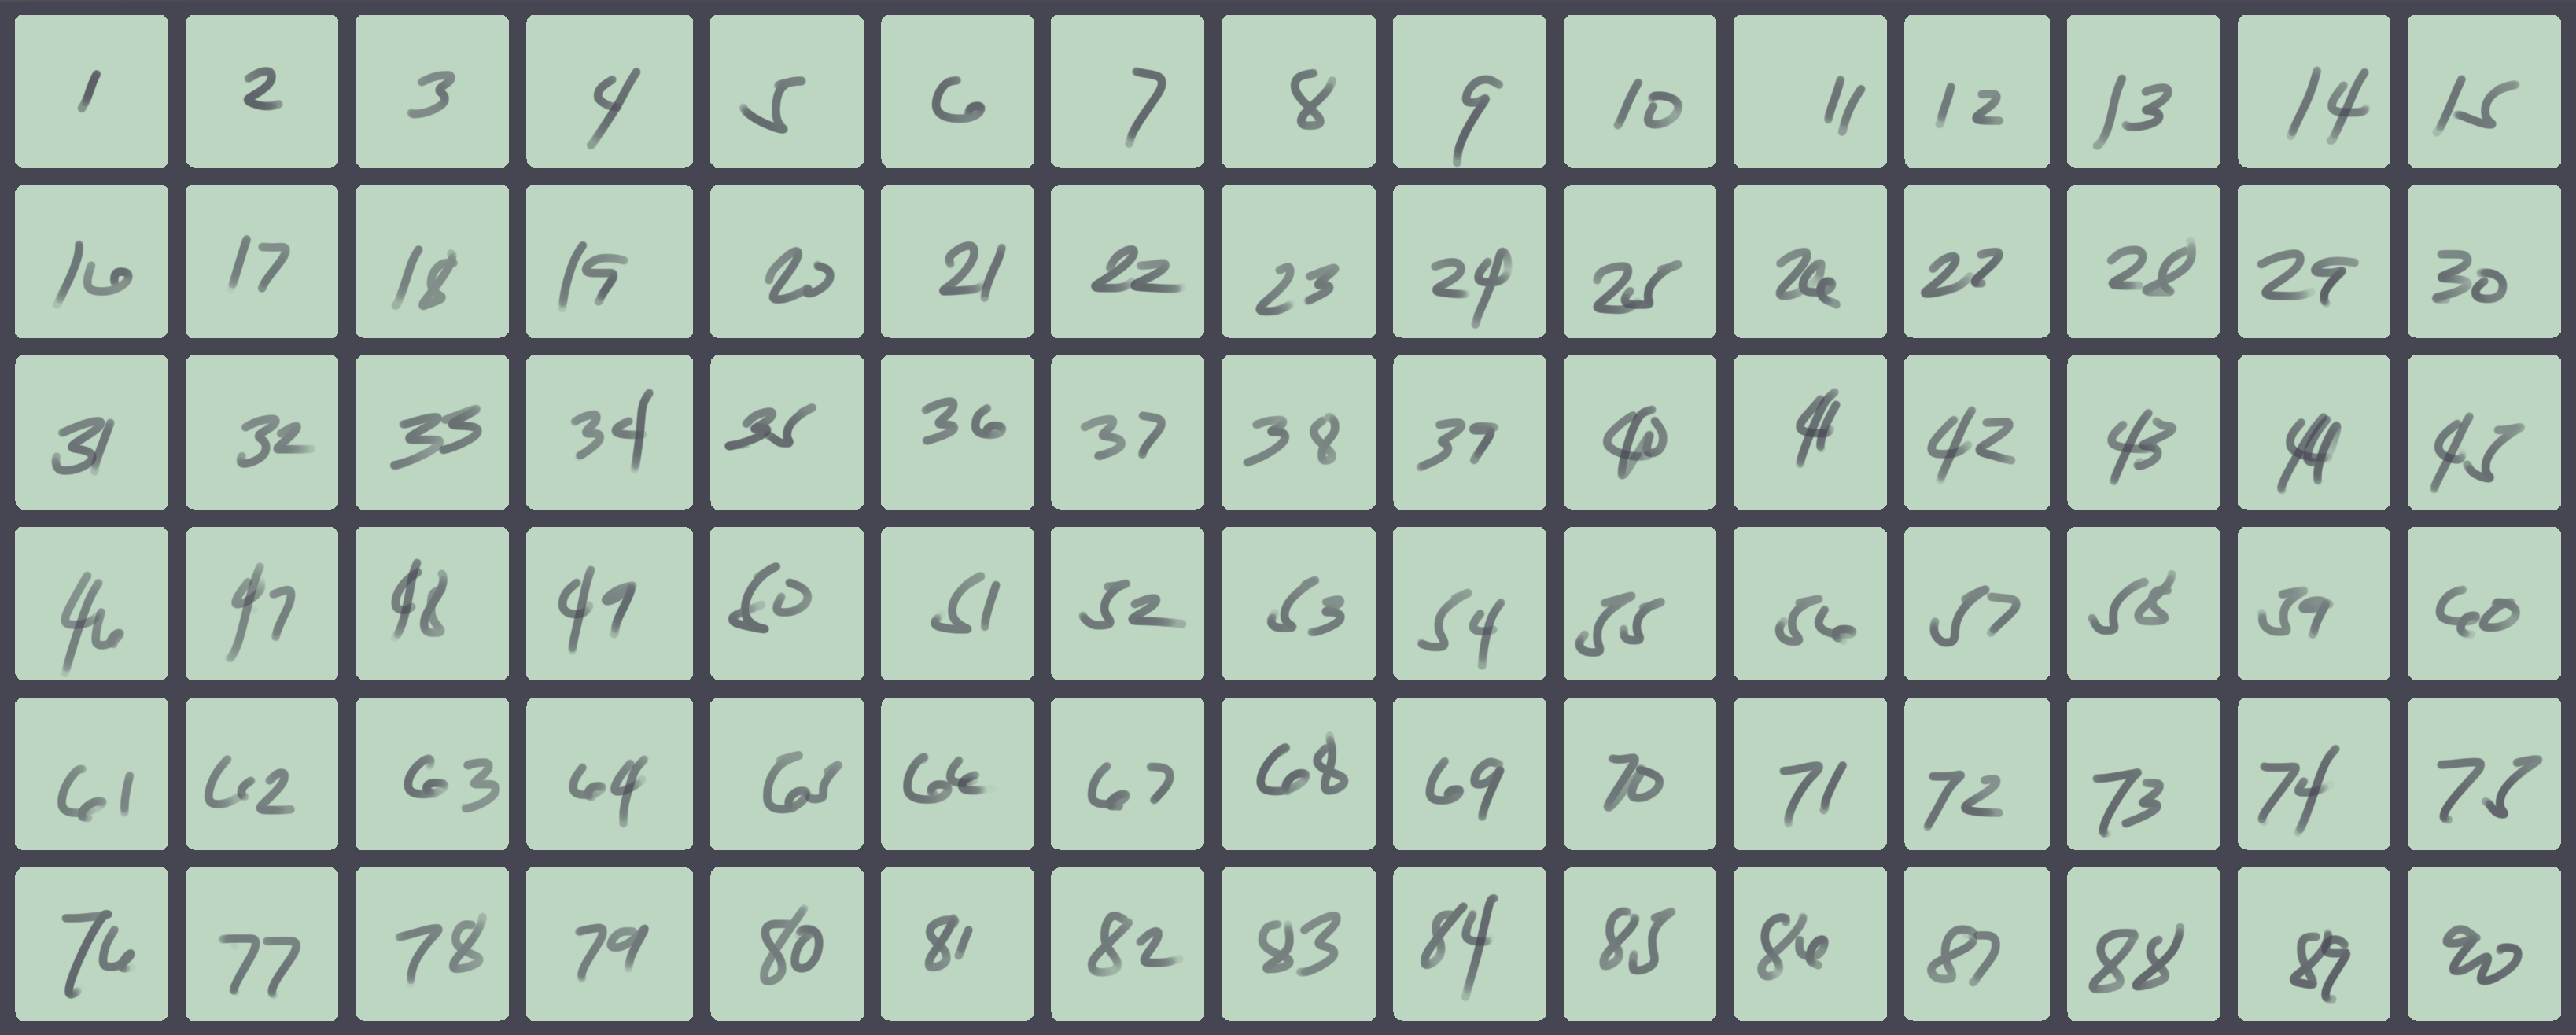 1 2 3 4 5 6 7 8 9 10 11 12 13 14 15
16 17 18 19 20 21 22 23 24 25 26 27 28 29 30
31 32 33 34 35 36 37 38 39 40 41 42 43 44 45
46 47 48 49 50 51 52 53 54 55 56 57 58 59 60
61 62 63 64 65 66 67 68 69 70 71 72 73 74 75
76 77 78 79 80 81 82 83 84 85 86 87 88 89 90